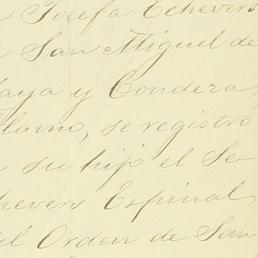 Josefa Echevers
San Miguel de
y Condera,
Alamo, se registro
su hijo el Se
chevers Espinal,
el Orden de San